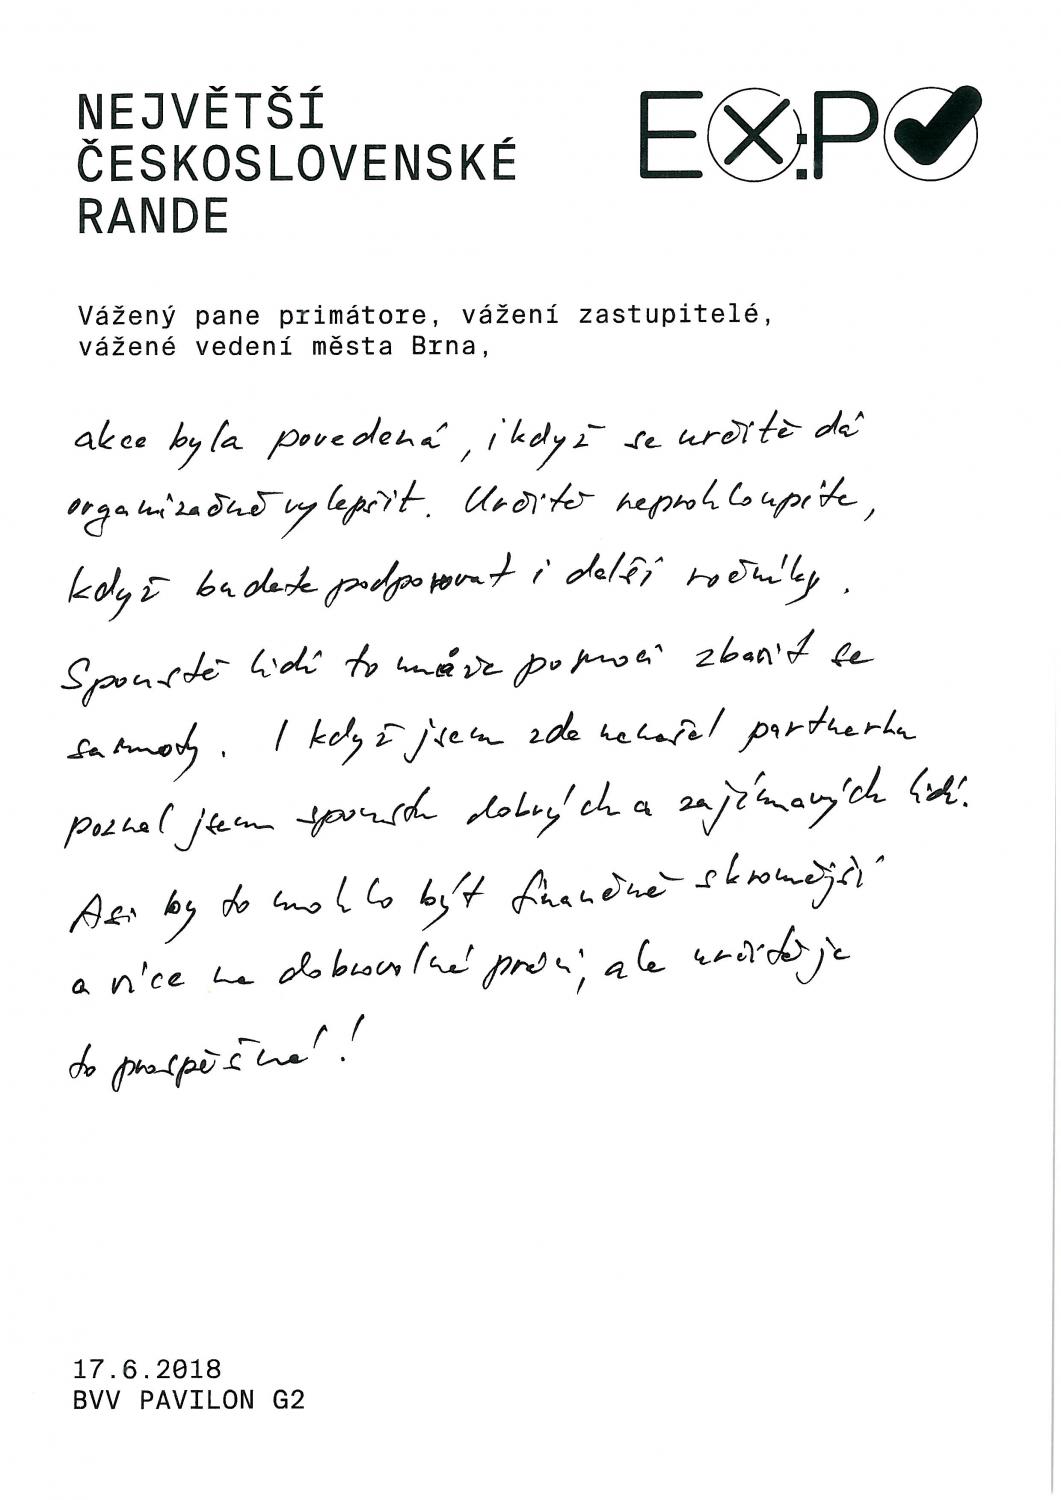 NEJVĚTŠÍ
ČESKOSLOVENSKÉ
RANDE
EX:PO
Vážený pane primátore, vážení zastupitelé,
vážené vedení města Brna,
akce byla povedená, i když se určitě dá
organizačně vylepšit. Určitě neprohloupíte,
když budete podporovat i další ročníky.
Spoustě lidí to může pomoci zbavit se
samoty. I když jsem zde nenašel partnerku
poznal jsem spoustu dobrých a zajímavých lidí.
Asi by to mohlo být finančně skromější
a více na dobrovolné práci, ale určitě je
to prospěšné!
17.6.2018
BVV PAVILON G2